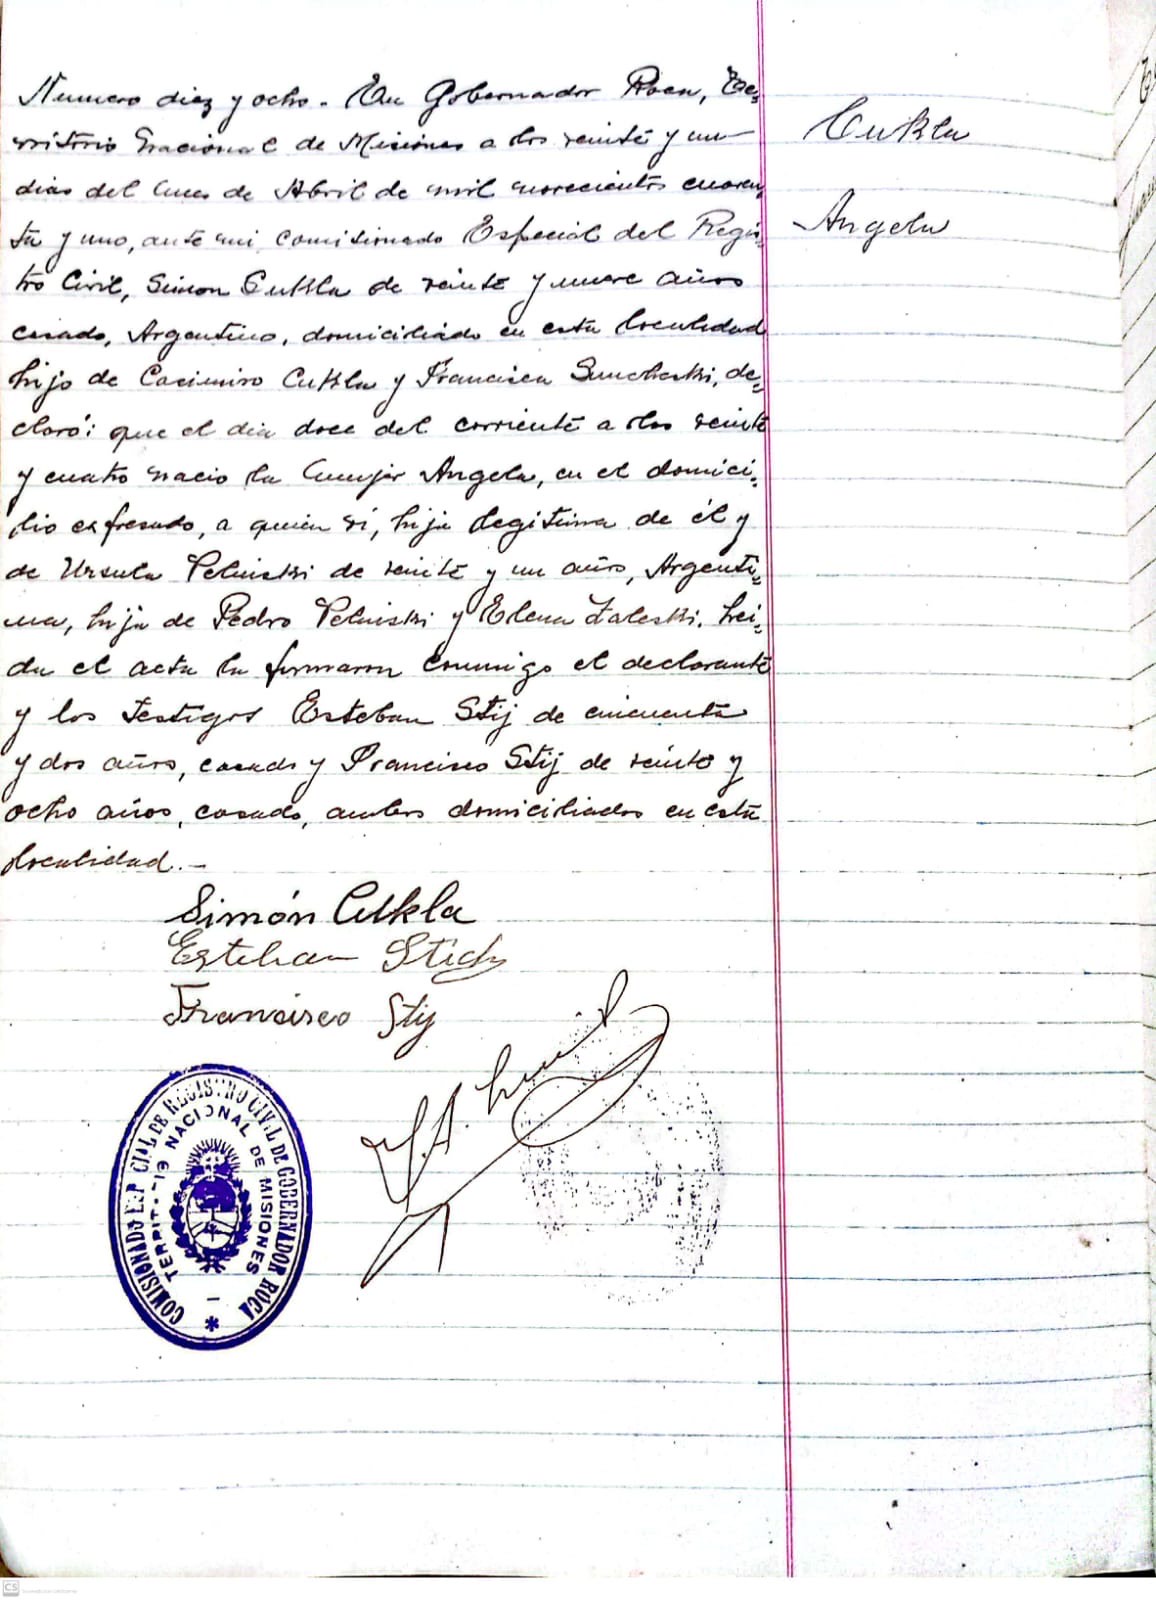 Numero diez y ocho. En Gobernador Roca, Te=
rritorio Nacional de Misiones a los veinte y un
dias del mes de Abril de mil novecientos cuaren=
ta y uno, ante mi comisionado Especial del Regis=
tro Civil, Simon Cukla de veinte y nueve años
casado, Argentino, domiciliado en esta localidad
hijo de Casimiro Cukla y Francisca Suncheski, de=
claró: que el dia doce del corriente a las veinte
y cuatro nacio la mujer Angela, en el domici=
lio expresado, a quien ví, hija legitima de él y
de Ursula Peluiski de veinte y un años, Argenti=
na, hija de Pedro Peluiski y Elena Zaleski. Leí=
da el acta la firmaron conmigo el declarante
y los testigos Esteban Stij de cincuenta
y dos años, casado y Francisco Stij de veinte y
ocho años, casado, ambos domiciliados en esta
localidad.-
Cukla
Angela
Simón Cukla
Esteban Stich
Francisco Stij
COMISIONADO ESPECIAL DE REGISTRO CIVIL DE GOBERNADOR ROCA
TERRITORIO NACIONAL DE MISIONES
CS